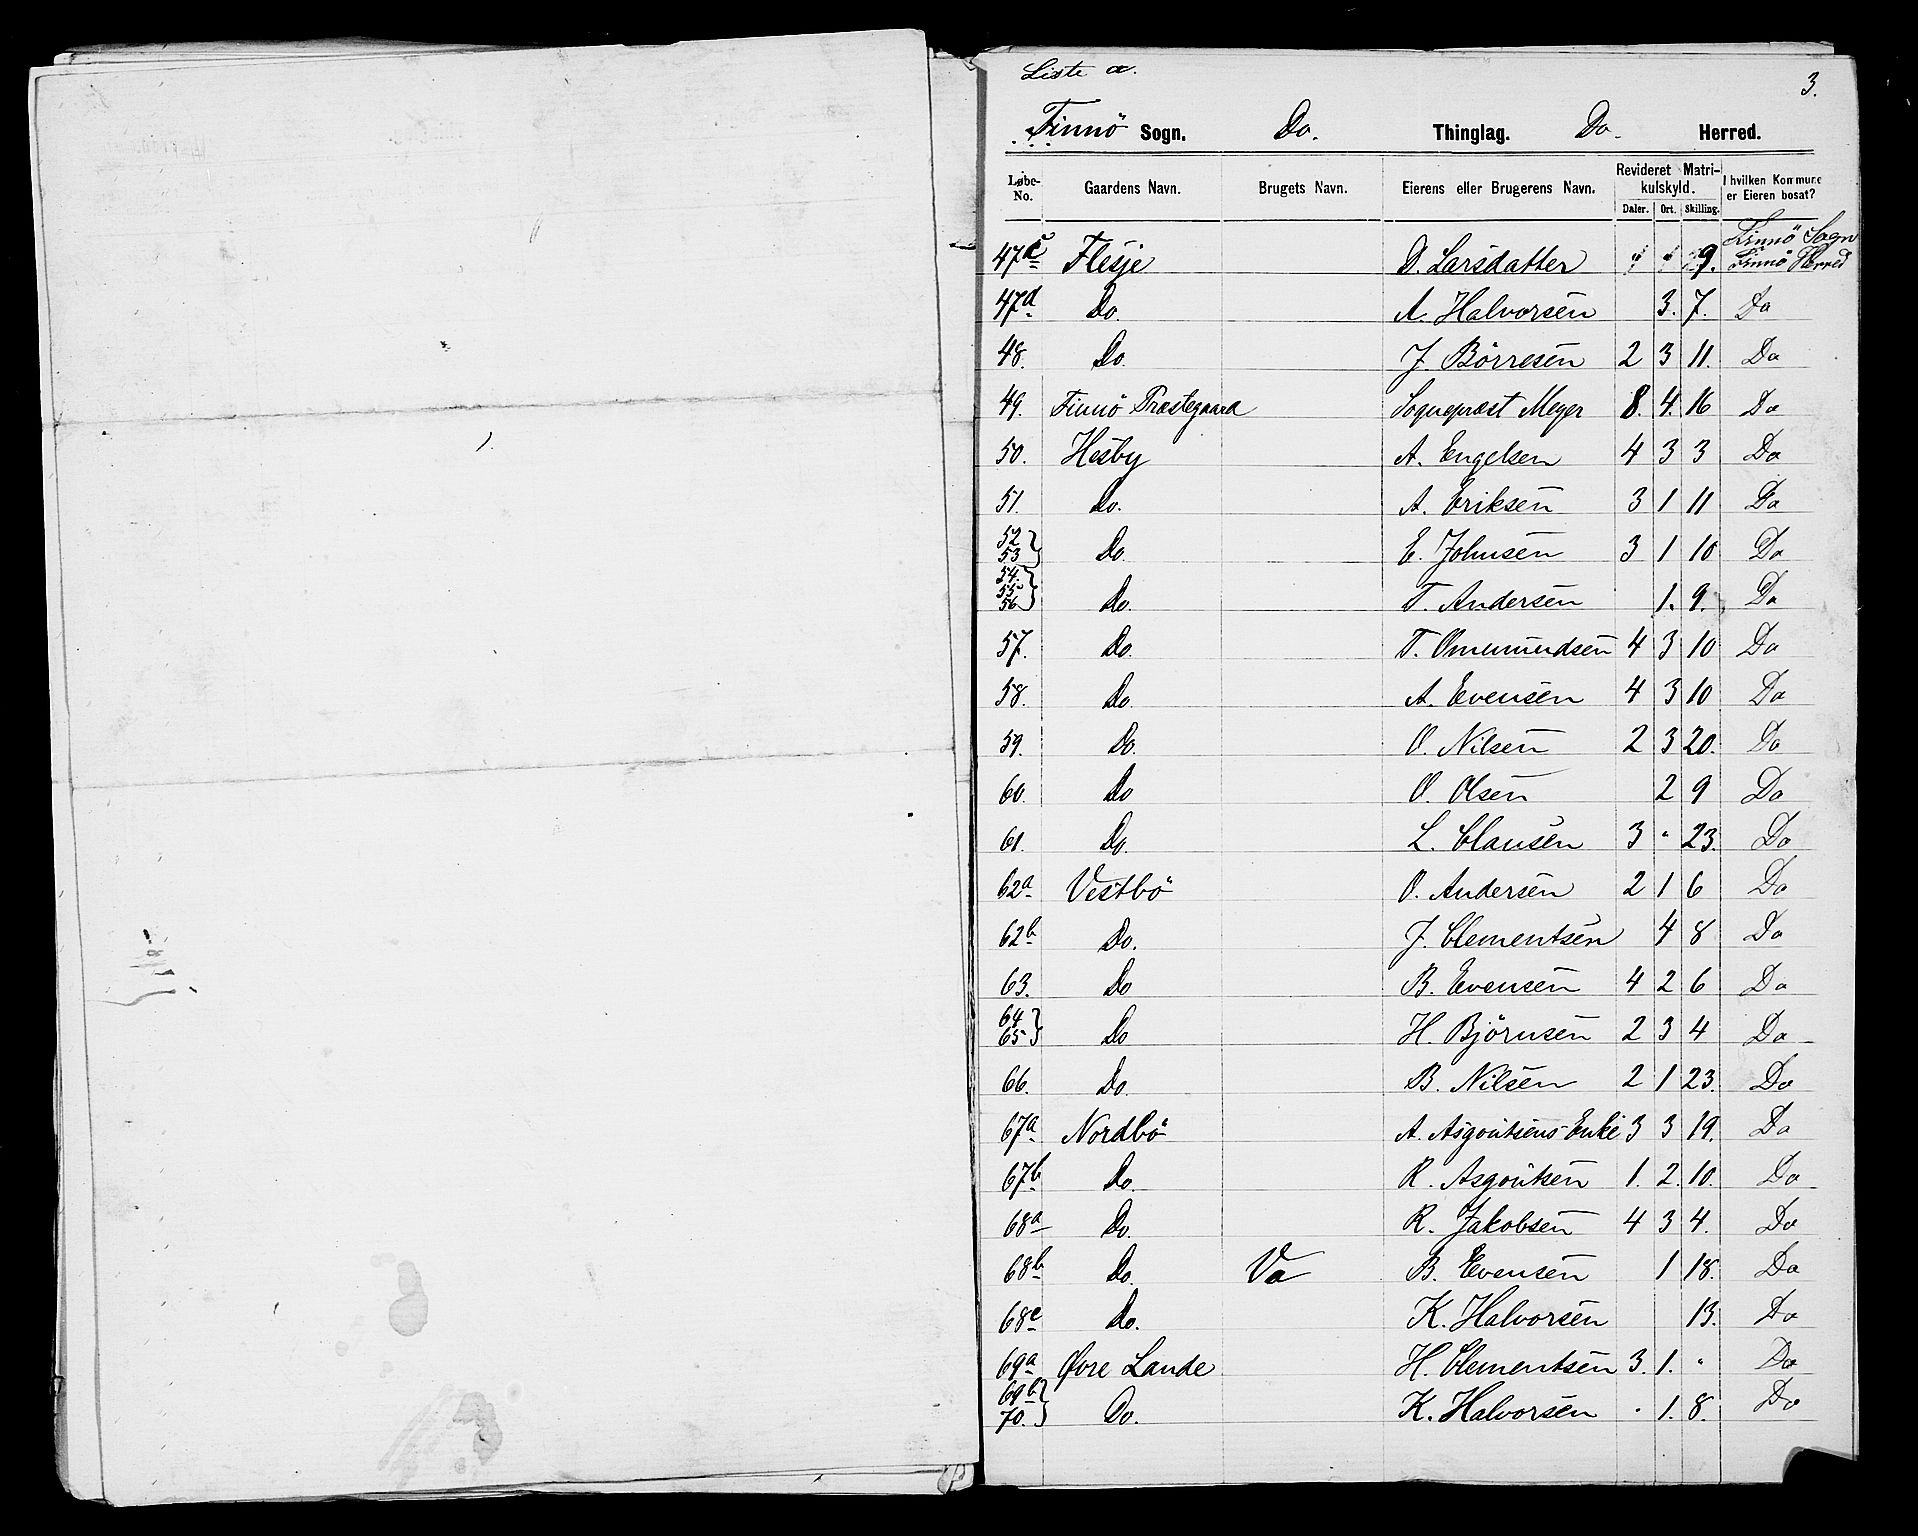 Liste a.
3.
Finnö Sogn. Do. Thinglag. Do. Herred.
Løbe-No. Gaardens Navn. Brugets Navn. Eierens eller Brugerens Navn. Revideret Matrikulskyld. Daler. Ort. Skilling. I hvilken Kommune er Eieren bosat?
47c Flesje D. Larsdatter " " 9. Finnö Sogn Finnö Herred
47d Do. A. Halvorsen 3. 7. Do
48. Do. J. Börresen 2 3 11. Do
49. Finnö Præstegaard Sognepræst Meyer 8. 4. 16 Do
50. Hesby A. Engelsen 4 3 3 Do
51. Do. A. Eriksen 3 1 11 Do
52 53} Do. E. Johnsen 3 1 10 Do
54. 55 56} Do. T. Andersen 1. 9. Do
57. Do. T. Ommundsen 4 3 10 Do
58. Do. A. Evensen 4 3 10 Do
59. Do. O. Nilsen 2 3 20. Do
60. Do O. Olsen 2 9 Do
61. Do. L. Clausen 3 " 23. Do
62a Vestbö O. Andersen 2 1 6 Do
62b Do. J. Clementsen 4 8 Do
63. Do B. Evensen 4 2 6 Do
64 65} Do H. Björnsen 2 3 4 Do
66. Do. B. Nilsen 2 1 23. Do
67a Nordbö A. Asgoutsens Enke 3 3 19. Do
67b Do. R. Asgoutsen 1. 2. 10. Do
68a Do. R. Jakobsen 4 3 4. Do
68b Do. Va B. Evensen 1 18. Do
68c Do. K. Halvorsen 13. Do
69a Øvre Lande H. Clementsen 3. 1. " Do
69b 70.} Do. K. Halvorsen " 1. 8. Do